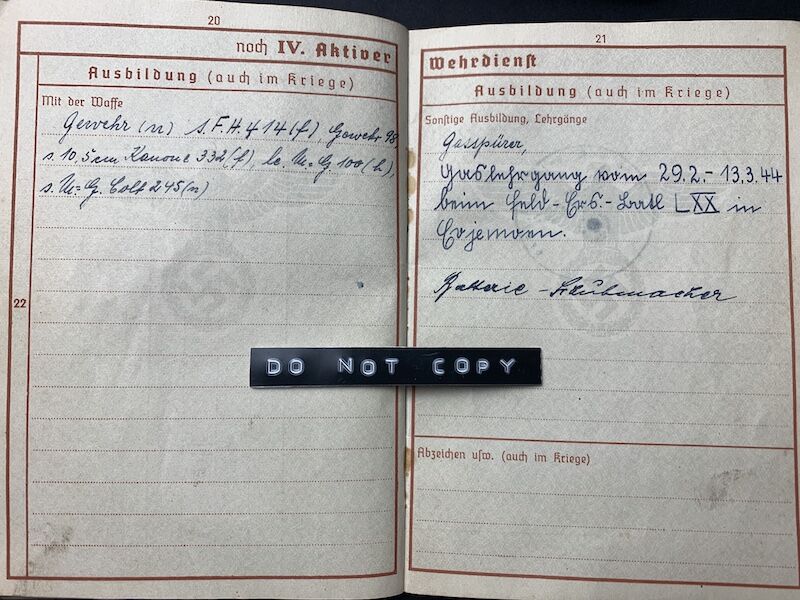 20
noch IV. Aktiver
Ausbildung (auch im Kriege)
Mit der Waffe
Gewehr (n) s.F.H. 414(f), Gewehr 98,
s. 10,5 cm Kanone 332(f), le. M.-G. 100(h),
s. M.-G. Colt 245(n)
22
21
Wehrdienst
Ausbildung (auch im Kriege)
Sonstige Ausbildung, Lehrgänge
Gasspürer,
Gaslehrgang vom 29.2.- 13.3.44
beim Feld-Ers.-Batl LXX in
Batterie -
Abzeichen usw. (auch im Kriege)
DO NOT COPY